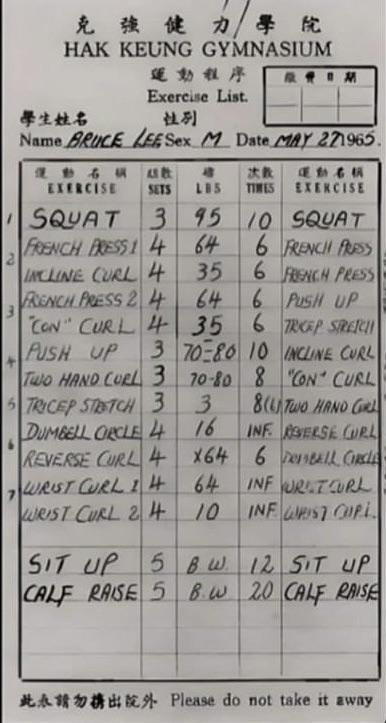 克強健力學院
HAK KEUNG GYMNASIUM
運動程序
Exercise List.
繳費日期
學生姓名 性別
Name BRUCE LEE Sex M Date MAY 27 1965.
運動名稱 組數 磅 次數 運動名稱
EXERCISE SETS LBS TIMES EXERCISE
1 SQUAT 3 95 10 SQUAT
2 FRENCH PRESS 1 4 64 6 FRENCH PRESS
INCLINE CURL 4 35 6 FRENCH PRESS
3 FRENCH PRESS 2 4 64 6 PUSH UP
"CON" CURL 4 35 6 TRICEP STRETCH
4 PUSH UP 3 70-80 10 INCLINE CURL
TWO HAND CURL 3 70-80 8 "CON" CURL
5 TRICEP STRETCH 3 3 8 TWO HAND CURL
6 DUMBELL CIRCLE 4 16 INF. REVERSE CURL
REVERSE CURL 4 x64 6 DUMBELL CIRCLE
7 WRIST CURL 1 4 64 INF WRIST CURL
WRIST CURL 2 4 10 INF. WRIST CURL
SIT UP 5 B.W. 12 SIT UP
CALF RAISE 5 B.W 20 CALF RAISE
請勿攜出院外 Please do not take it away